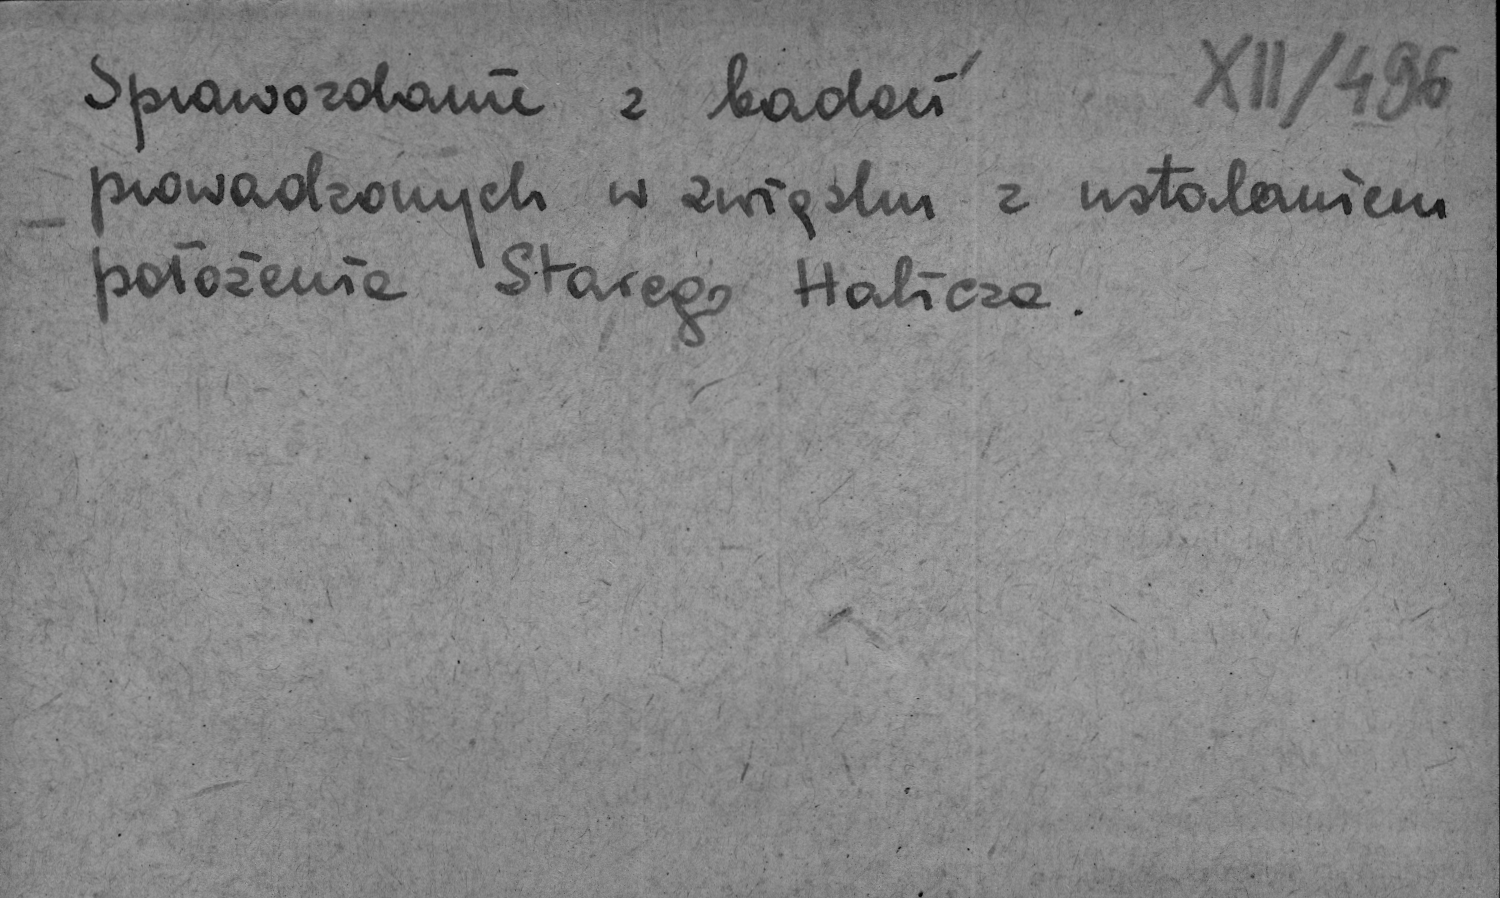 Sprawozdanie z badań XII/496
prowadzonych w związku z ustaleniem
położenia Starego Halicza.